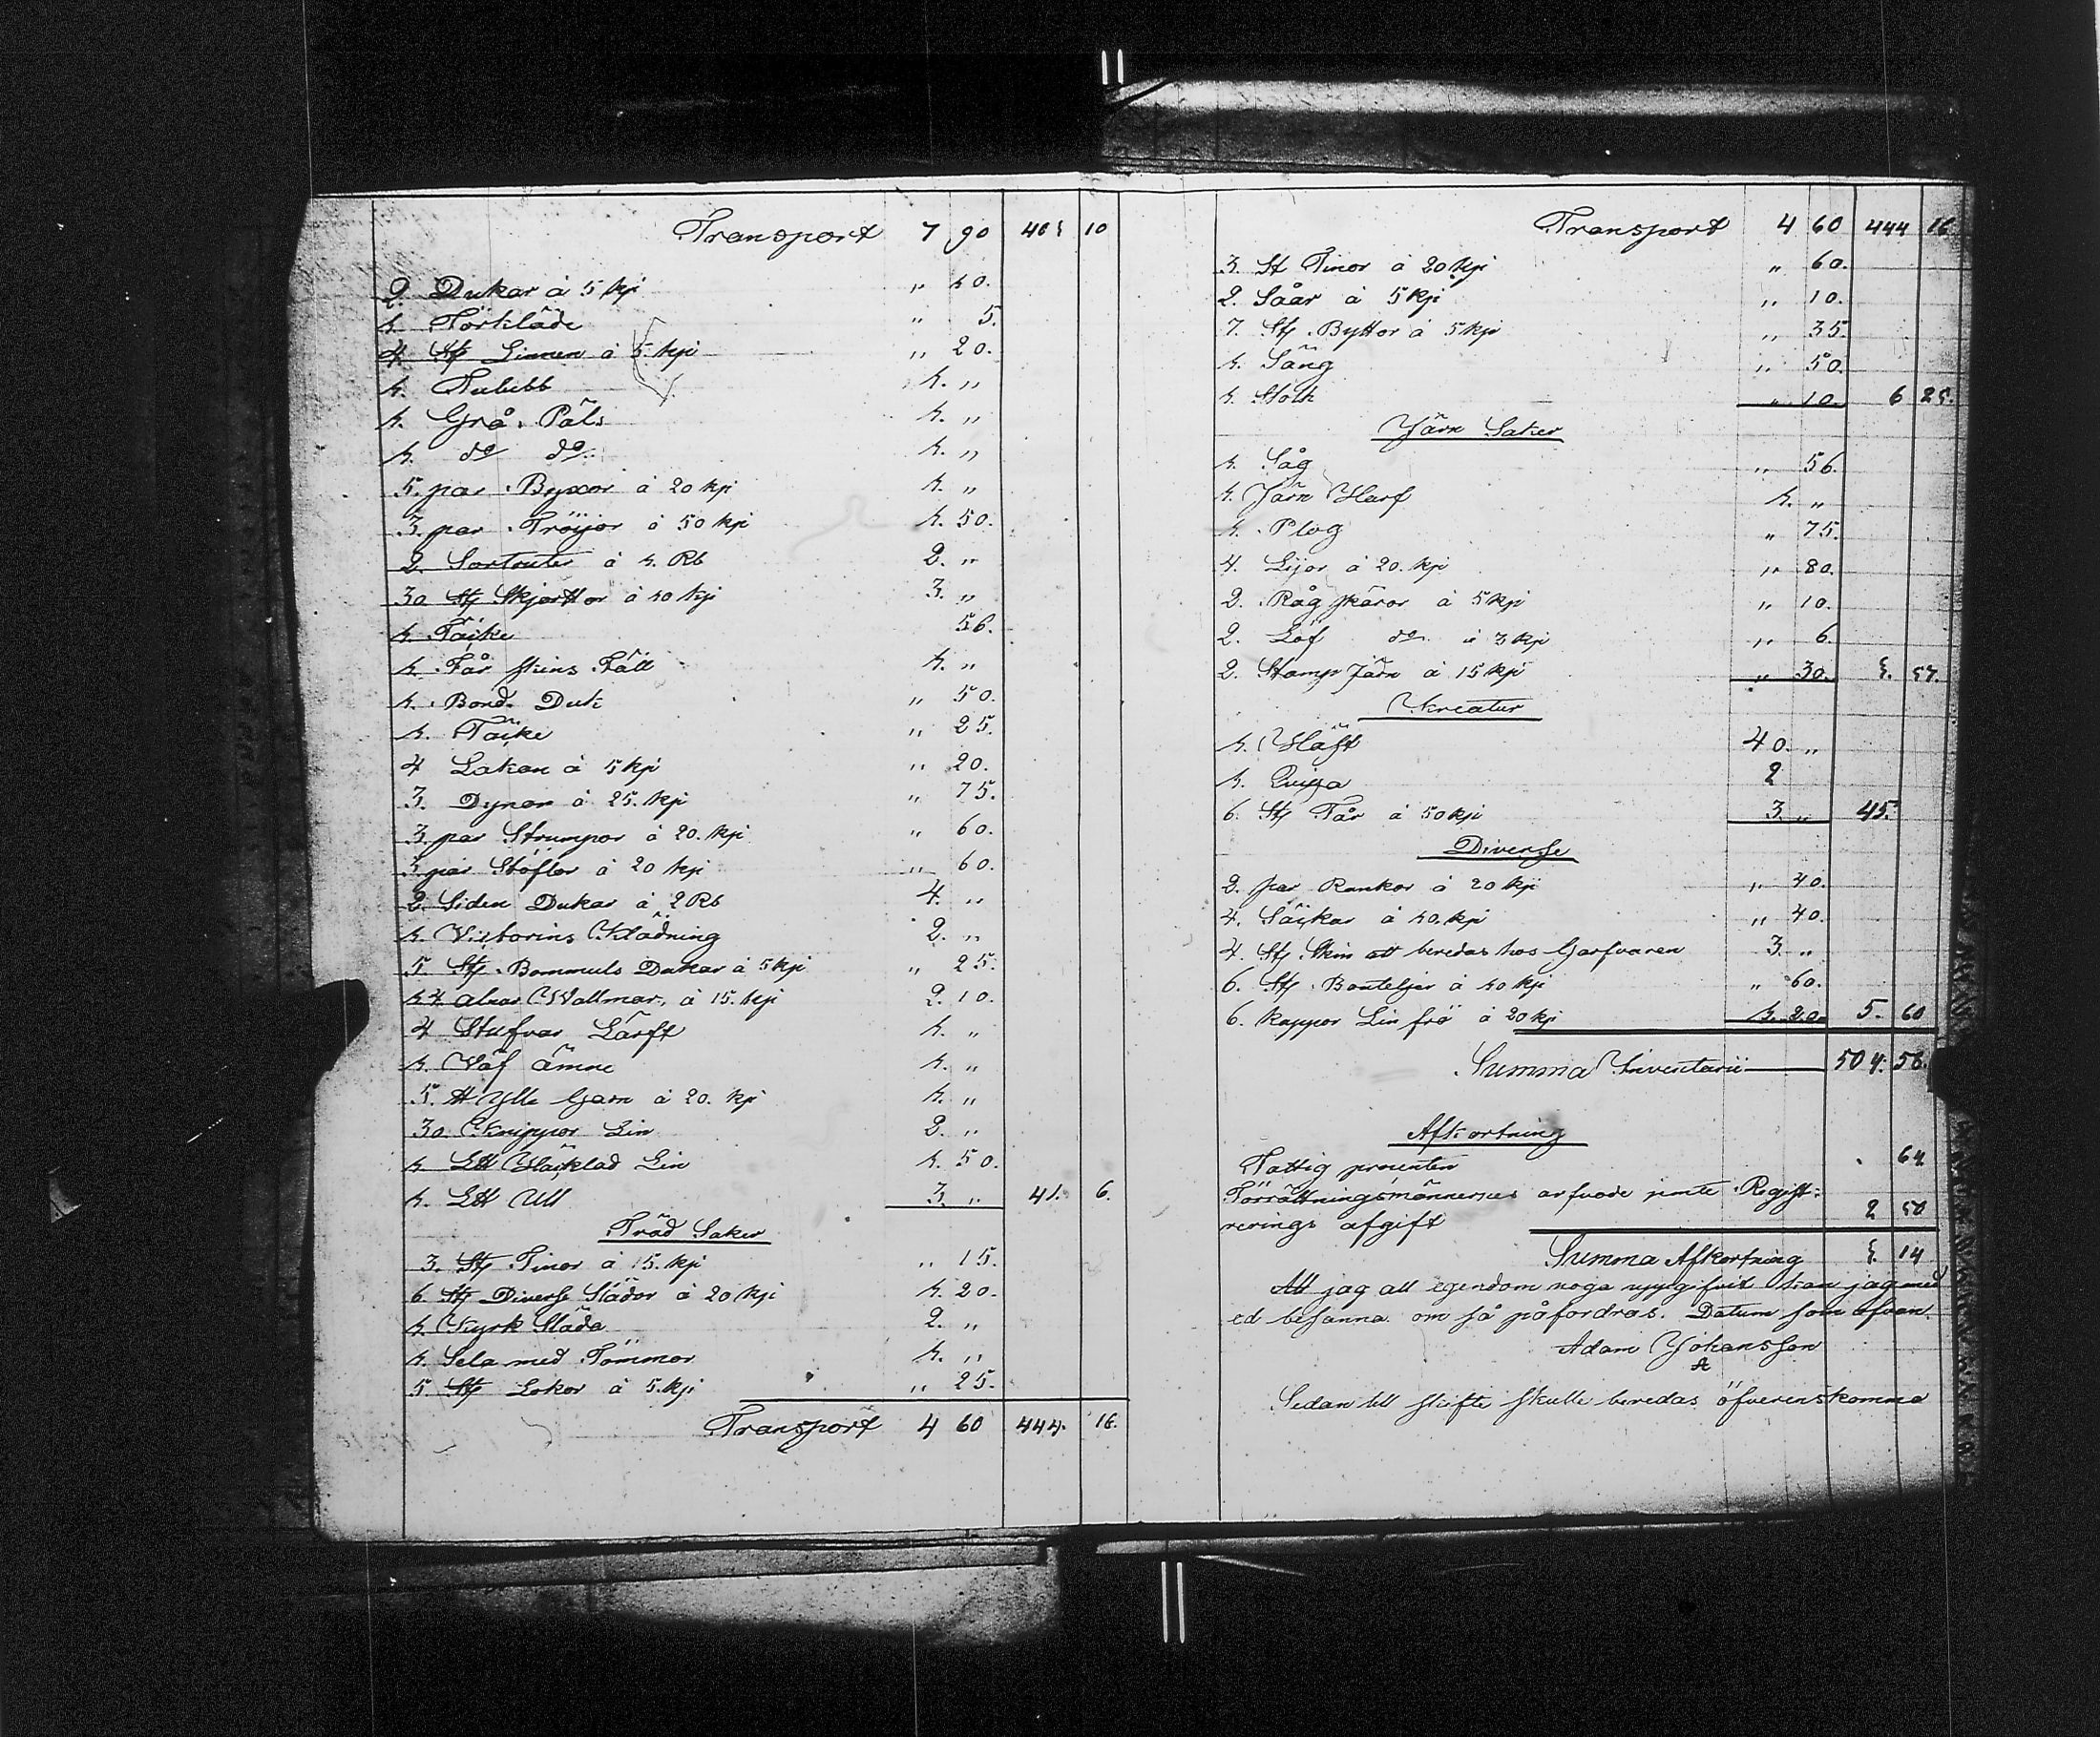 Transport 7 90 403 10
2. Dukar à 5 kpi " 10.
1. Förkläde " 5.
4. Stÿ Linnen à 5 kpi " 20.
1. Tulubb 1. "
1. Grå Päls 1. "
1. do do 1. "
5. par Byxor à 20 kpi 1. "
3. par Tröijor à 50 kpi 1. 50.
2. Sortouter à 1. Rb 2. "
30 Stÿ Skjorttor à 10 kpi 3. "
1. Täcke 56.
1. Får skins Fäll 1. "
1. Bord Duk " 50.
1. Täcke " 25.
4 Lakan à 5 kpi " 20.
3. Dynor à 25. kpi " 75.
3. par Strumpor à 20. kpi " 60.
3. par Stöflor à 20 kpi " 60.
2. Siden Dukar à 2 Rb 4. "
1. Victorins Klädning 2. "
5. Stÿ Bommuls Dukar à 5 kpi " 25.
14 alnar Wallmar à 15. kpi 2. 10.
4 Stufvar Lärft 1. "
1. Väf ämne 1. "
5. tt Ylle Garn à 20. kpi 1. "
30. Knippor Lin 2. "
1. Ltt Häcklad Lin 1. 50.
1. Ltt Ull 3. " 41. 6.
Träd Saker
3. Stÿ Tinor à 15. kpi " 15.
6. Stÿ Diverse Slädor à 20 kpi 1. 20.
1. Kyrk Släda 2. "
1. Sela med Tömmar 1. "
5 Stÿ Lokor à 5. kpi " 25.
Transport 4 60 444. 16.
Transport 4 60 444 16
3. St Tinor à 20 kpi " 60.
2. Såar à 5 kpi " 10.
7. Stÿ Byttor à 5 kpi " 35.
1. Säng " 50.
1. Stolk " 10. 6 25.
Järn Saker
1. Såg " 56.
1. Järn Harf 1. "
1. Plog " 75.
4. Lijor à 20. kpi " 80.
2. Råg skäror à 5 kpi " 10.
2. Löf do à 3 kpi " 6.
2. Stamp Järn à 15 kpi " 30. 3. 57.
Kreatur
1. Häst 40. "
1. Quiga 2
6. Stÿ Får à 50 kpi 3. " 45.
Diverse
2. par Rankor à 20 kpi " 40.
4. Säckar à 10. kpi " 40.
4. Stÿ Skin att beredas hos Garfvaren 3. "
6. Stÿ Bouteljer à 10 kpi " 60.
6. kappor Lin frö à 20 kpi 1. 20. 5. 60
Summa Inventarii 504. 58.
Afkortning
Fattig procenten 64
Förrättningsmännernes arfvode jemte Regist:
rerings afgift 2 50
Summa Afkortning 3. 14
Att jag all egendom noga uppgifvit kan jag med
ed besanna om så påfordras. Datum som ofvan.
Adam Johansson
Sedan till skifte skulle beredas öfverenskomma